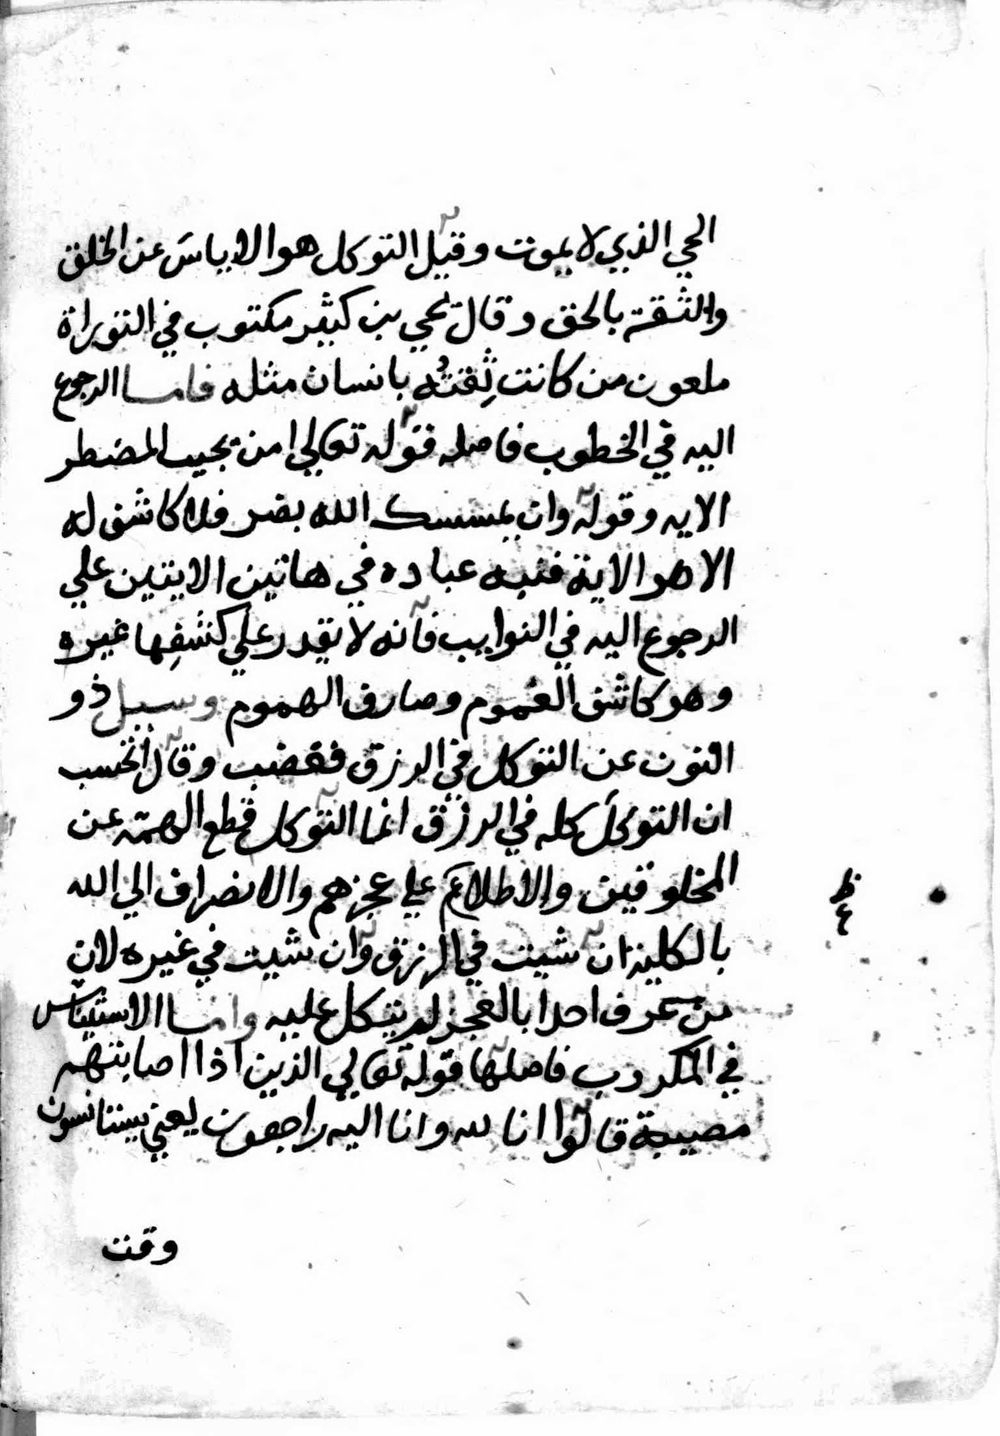 الحي الذي لا يموت وقيل التوكل هو الاياس عن الخلق
والثقة بالحق وقال يحي بن كثير مكتوب في التوراة
ملعون من كانت ثِقتُه بانسان مثله فاما الرجوع
اليه في الخطوب فاصله قوله تعالي امن يجيب المضطر
الايه وقوله وان يمسسك الله بضر فلا كاشف له
الا هو الاية فنبه عباده في هاتين الايتين علي
الرجوع اليه في النوايب فانه لا يقدر علي كشفِها غيره
وهو كاشف الغموم وصارف الهموم وسيل ذو
النون عن التوكل في الرزق فغضب وقال أتحسب
ان التوكل كله في الرزق انما التوكل قطع الهمة عن
المخلوقين والاطلاع علي عجزهم والانصراف الي الله
بالكلية ان شيت في الرزق وان شيت في غيره لان
من عرف احدا بالعجز لم يتكل عليه واما الاستيناس
في الكروب فاصلها قوله تعالي الذين اذا اصابتهم
مصيبة قالوا انا لله وانا اليه راجعون يعني يستانسون
وقت